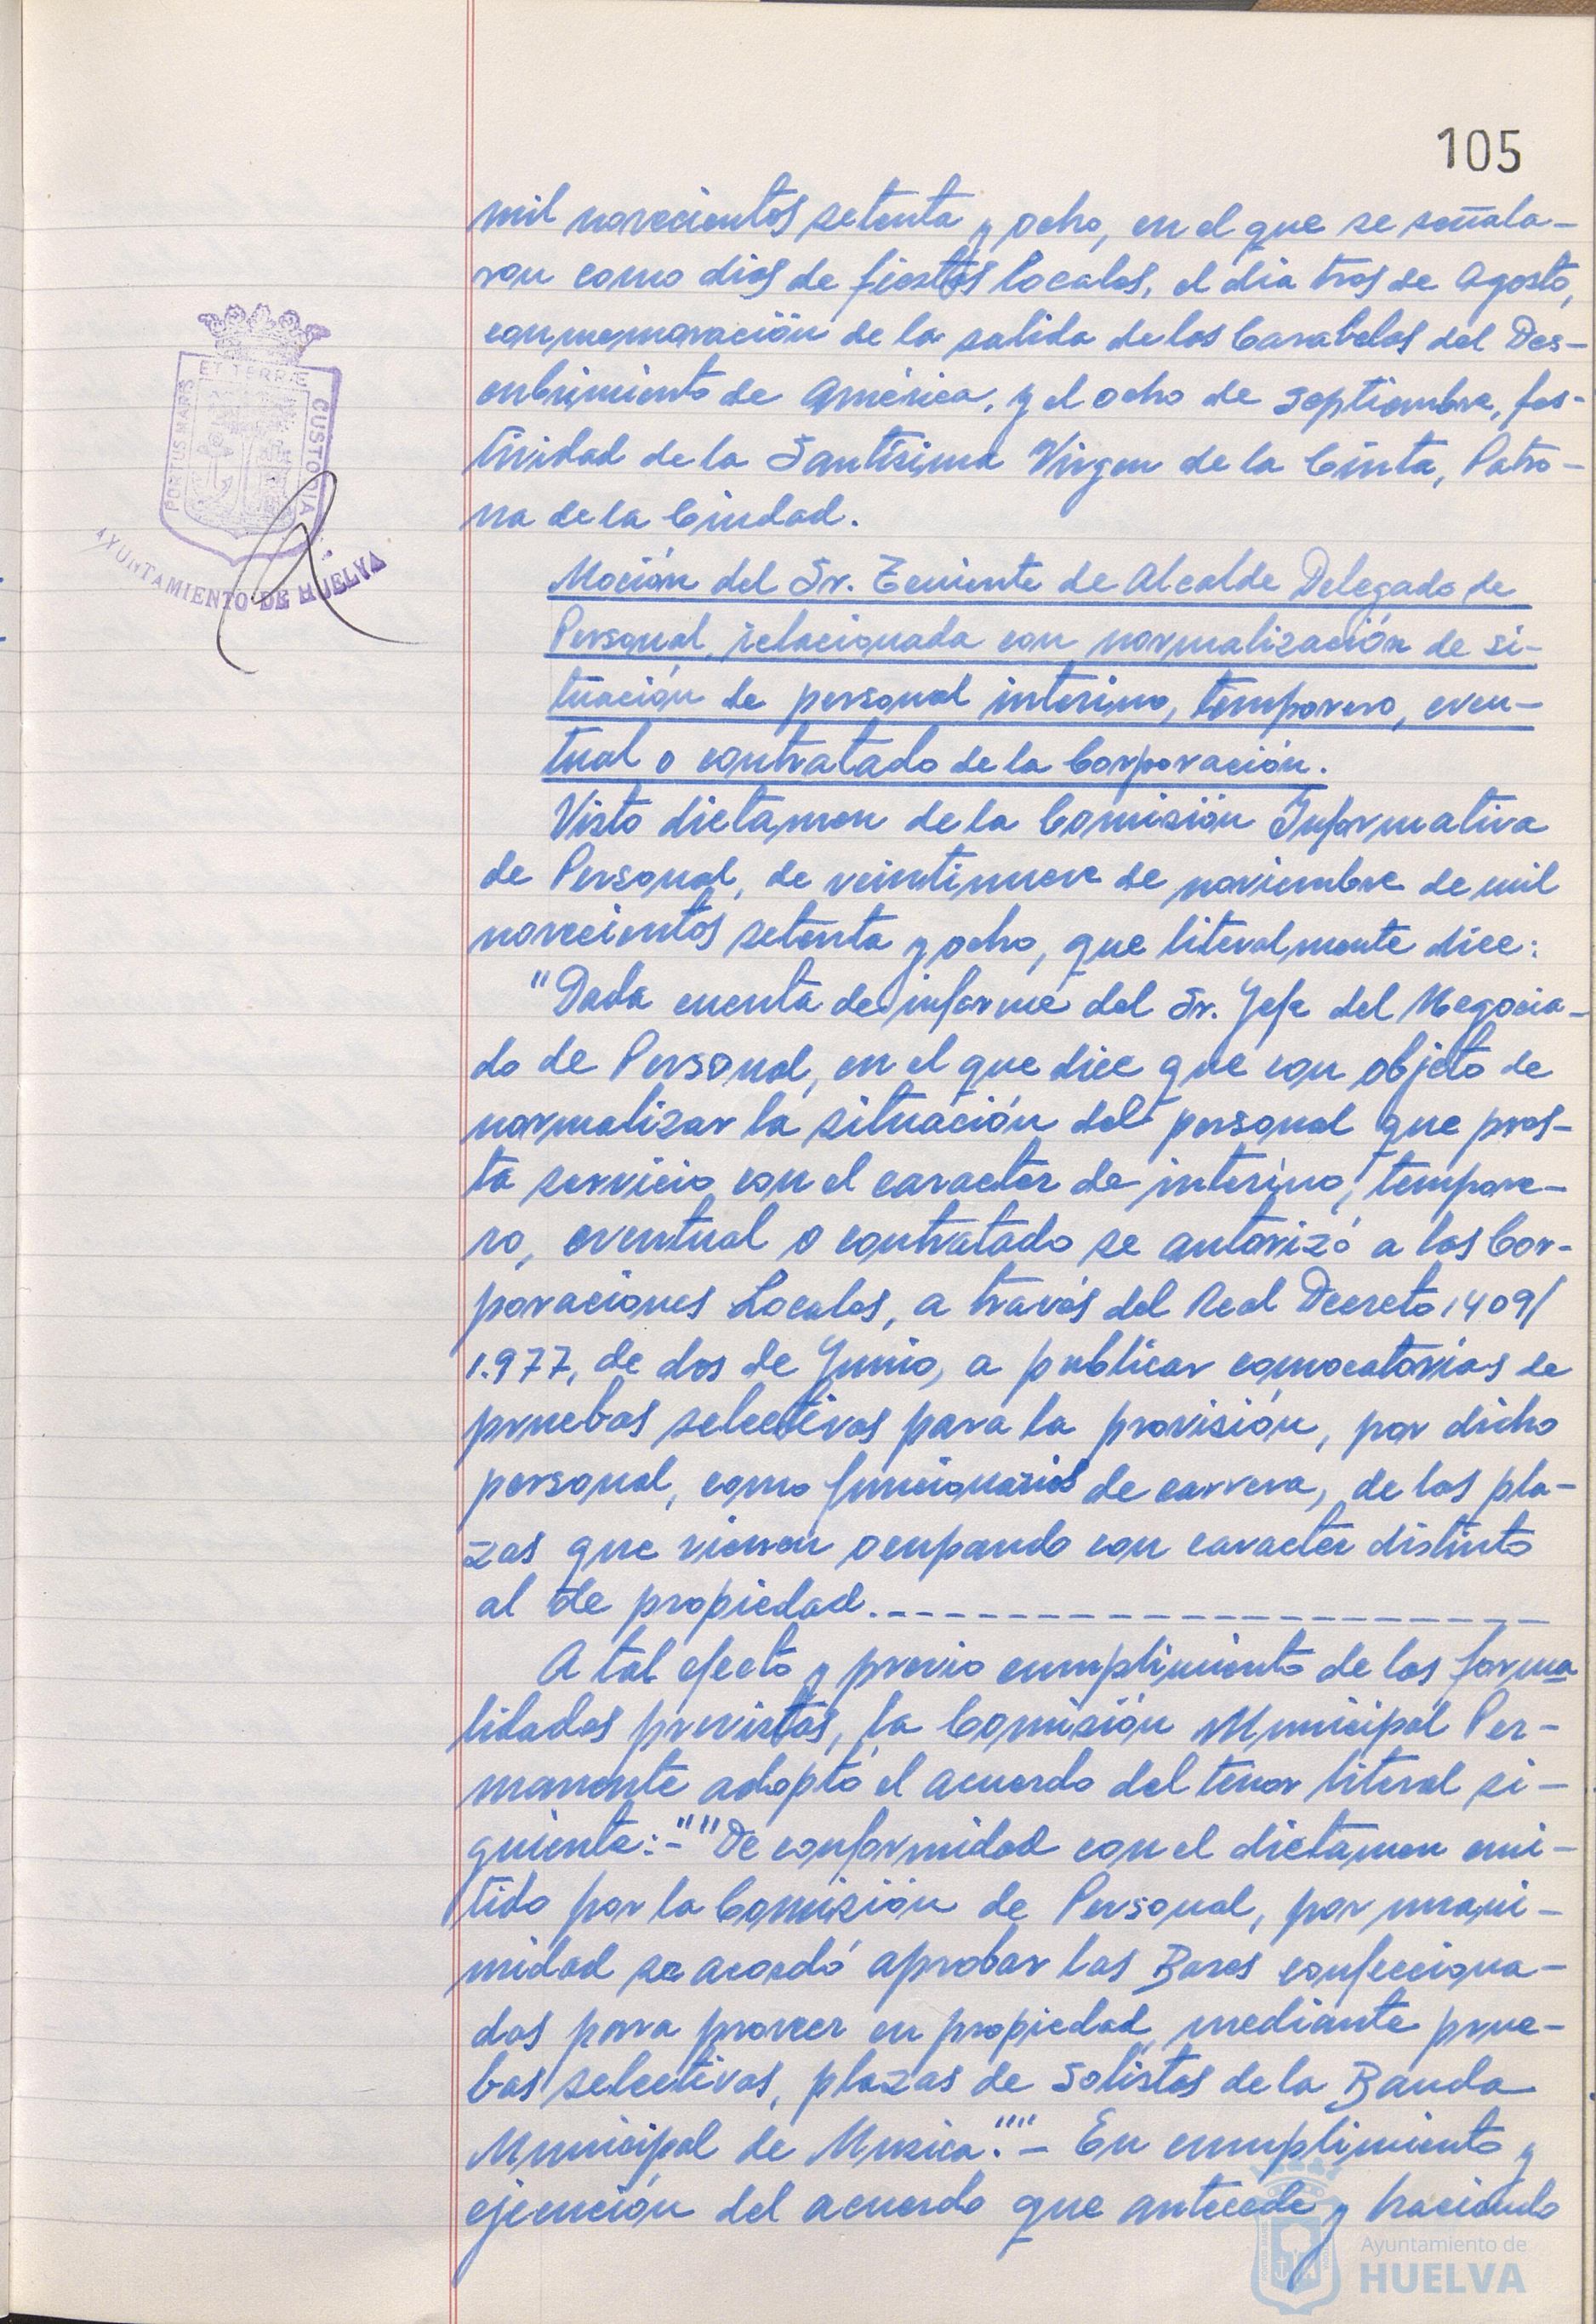 105
mil novecientos setenta y ocho, en el que se señala-
ron como dias de fiestas locales, el dia tres de Agosto,
conmemoración de la salida de las Carabelas del Des-
cubrimiento de América, y el ocho de Septiembre, fes-
tividad de la Santísima Virgen de la Cinta, Patro-
na de la Ciudad.
Moción del Sr. Teniente de Alcalde Delegado de
Personal, relacionada con normalización de si-
tuación de personal interino, temporero, even-
tual o contratado de la Corporación.
Visto dictamen de la Comisión Informativa
de Personal, de veintinueve de noviembre de mil
novecientos setenta y ocho, que literalmente dice:
"Dada cuenta de informe del Sr. Jefe del Negocia-
do de Personal, en el que dice que con objeto de
normalizar la situación del personal que pres-
ta servicio con el caracter de interino, tempore-
ro, eventual o contratado se autorizó a las Cor-
poraciones Locales, a través del Real Decreto 1409/
1.977, de dos de Junio, a publicar convocatorias de
pruebas selectivas para la provisión, por dicho
personal, como funcionarios de carrera, de las pla-
zas que vienen ocupando con caracter distinto
al de propiedad.
A tal efecto y previo cumplimiento de las forma
lidades previstas, la Comisión Municipal Per-
manente adoptó el acuerdo del tenor literal si-
guiente:-""De conformidad con el dictamen emi-
tido por la Comisión de Personal, por unani-
midad se acordó aprobar las Bases confecciona-
das para proveer en propiedad, mediante prue-
bas selectivas, plazas de Solistas de la Banda
Municipal de Musica."".- En cumplimiento y
ejecución del acuerdo que antecede y haciendo
PORTUS MARIS
ET TERRE
CUSTODIA
AYUNTAMIENTO DE HUELVA
Ayuntamiento de
HUELVA